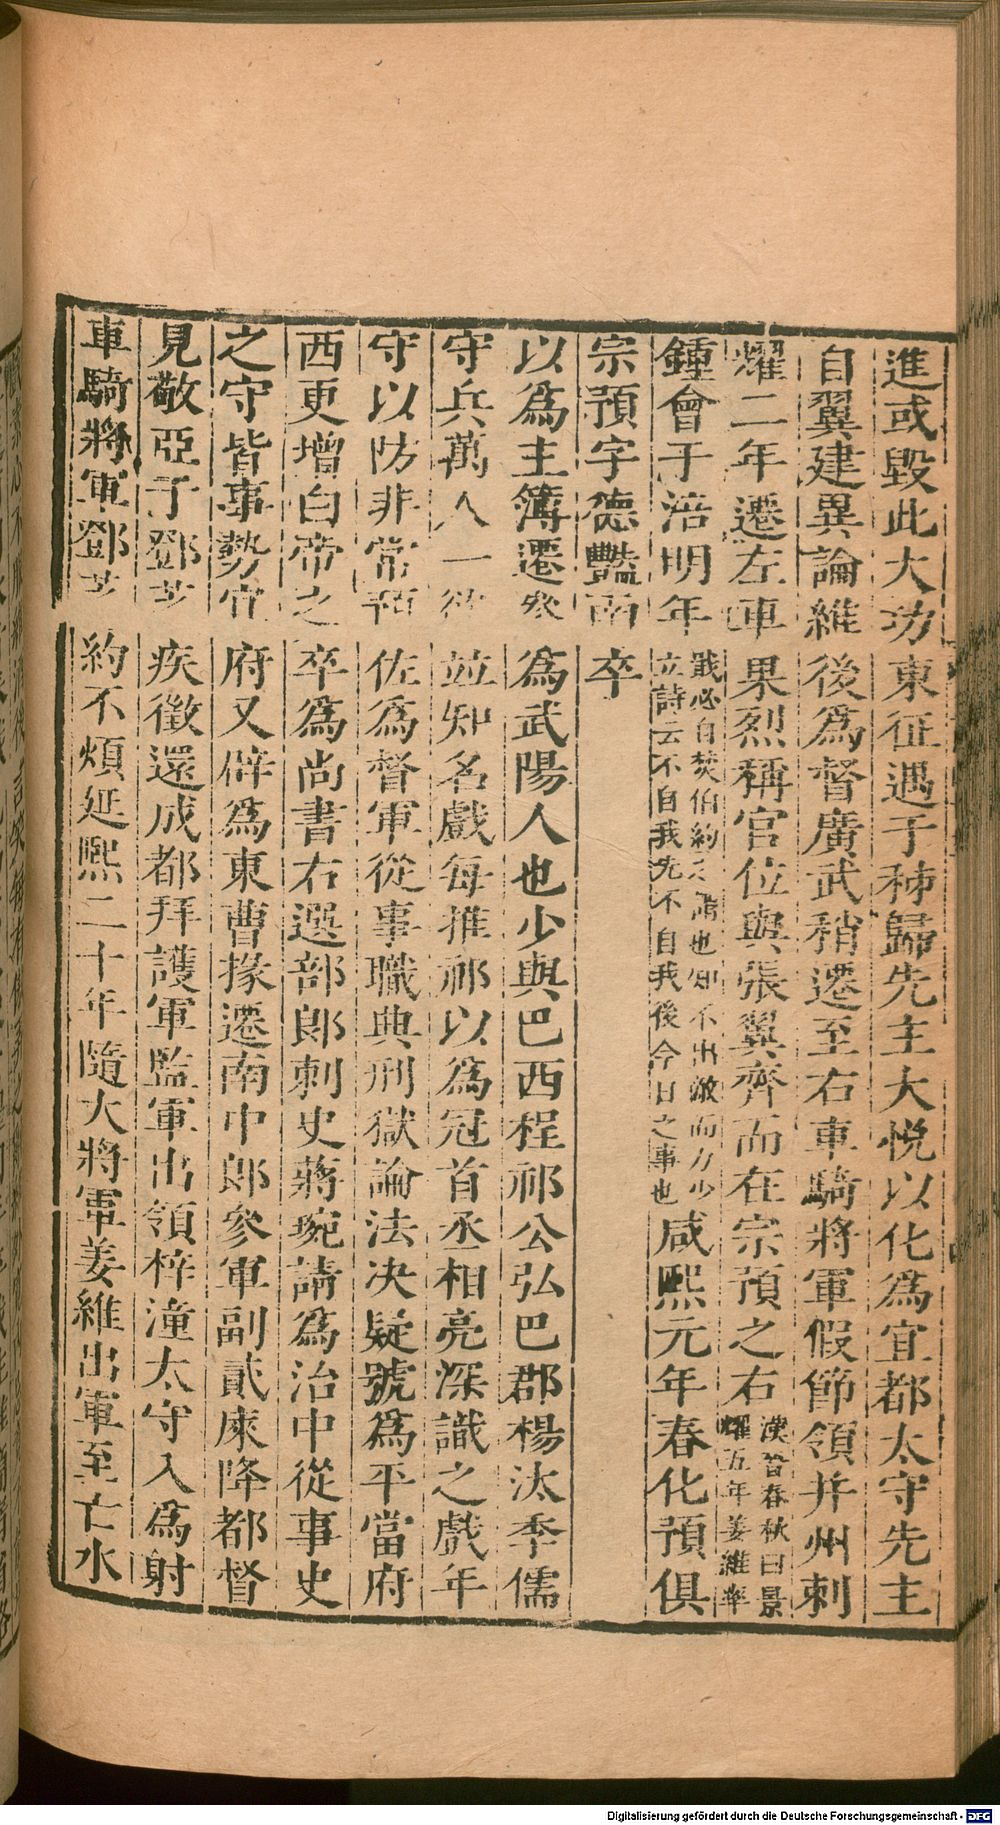 進或毀此大功東征遇于秭歸先主大悅以化爲宜都太守先主
自翼建異論維後爲督廣武稍遷至右車騎將軍假節領并州刺
耀二年遷左車果烈稱官位與張翼齊而在宗預之右漢晉春秋曰景耀五年姜維率
鍾會于涪明年戢必自焚伯約之謂也知不出敵而力少立詩云不自我先不自我後今日之事也咸熙元年春化預俱
宗預字德豔南卒
以爲主簿遷參爲武陽人也少與巴西程祁公弘巴郡楊汰季儒
守兵萬人一欲並知名戲每推祁以爲冠首丞相亮深識之戲年
守以防非常預佐爲督軍從事職典刑獄論法决疑號爲平當府
西更增白帝之卒爲尚書右選部郎刺史蔣琬請爲治中從事史
之守皆事勢宜府又辟爲東曹掾遷南中郎參軍副貳庲降都督
見敬亞于鄧芝疾徵還成都拜護軍監軍出領梓潼太守入爲射
車騎將軍鄧芝約不煩延熙二十年隨大將軍姜維出軍至亡水
Digitalisierung gefördert durch die Deutsche Forschungsgemeinschaft - DFG